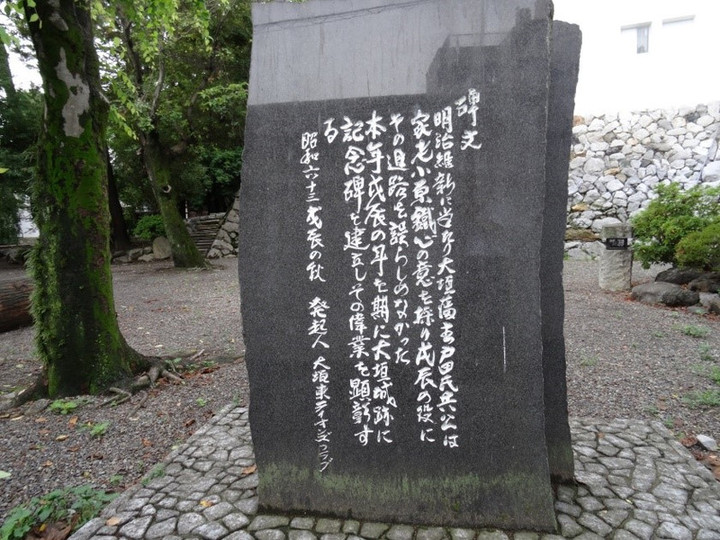 碑文
明治維新に当たり大垣藩主戸田氏共公は
家老小原鐵心の意を採り戊辰の役に
その進路を誤らしめなかった
本年戊辰の年を期に大垣城跡に
記念碑を建立しその偉業を顕彰す
る
昭和六十三戊辰の秋 発起人 大垣東ライオンズクラブ